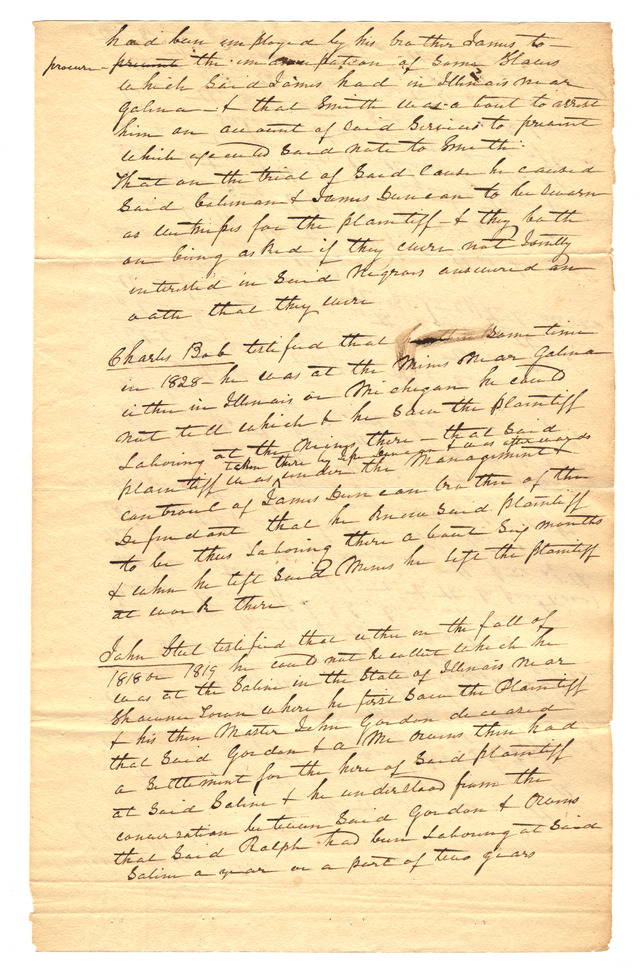 had been employed by his brother James to
procure the emancipation of some Slaves
which said James had in Illinois near
Galina - & that Smith was about to arrest
him on account of said Services to prevent
which he executed said note to Smith.
That on the trial of said cause he caused
said Coleman & James Duncan to be sworn
as witnesses for the plaintiff - & they both
on being asked if they were not Jointly
interested in said Negroes answered on
oath that they were
Charles Bob testified that some time
in 1828 - he was at the Mines near Galina
either in Illinois or Michegan he could
not tell which & he saw the plaintiff
Laboring at the Mines there - that said
taken there by & was afterwards
plaintiff was under the Management &
controul of James Duncan brother of the
Defendant that he knew said plaintiff
to be thus Laboring there about Six months
& when he left said Mines he left the plaintiff
at work there
John Steel testified that either in the fall of
1818 or 1819 he could not recollect which he
was at the Saline in the State of Illinois near
Shawnee Town where he first saw the Plaintiff
& his then Master John Gordon deceased
that said Gordon & a Mr Orams then had
a Settlement for the hire of said plaintiff
at said Saline & he understood from the
conversation between said Gordon & Orams
that said Ralph had been Laboring at said
Saline a year or a part of two years